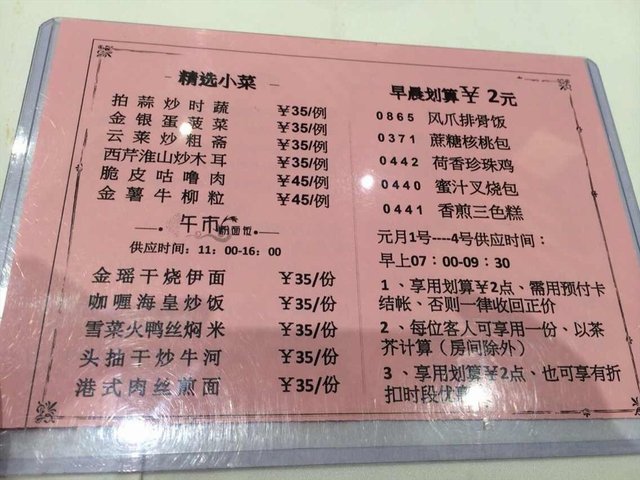 - 精选小菜 -
拍蒜炒时蔬 ￥35/例
金银蛋菠菜 ￥35/例
云菜炒粗斋 ￥35/例
西芹淮山炒木耳 ￥35/例
脆皮咕噜肉 ￥45/例
金薯牛柳粒 ￥45/例
午市粉面饭
供应时间：11：00-16：00
金瑶干烧伊面 ￥35/份
咖喱海皇炒饭 ￥35/份
雪菜火鸭丝焖米 ￥35/份
头抽干炒牛河 ￥35/份
港式肉丝煎面 ￥35/份
早晨划算￥2元
0865 风爪排骨饭
0371 蔗糖核桃包
0442 荷香珍珠鸡
0440 蜜汁叉烧包
0441 香煎三色糕
元月1号----4号供应时间：
早上07：00-09：30
1、享用划算￥2点、需用预付卡
结帐、否则一律收回正价
2、每位客人可享用一份、以茶
芥计算（房间除外）
3、享用划算￥2点、也可享有折
扣时段优